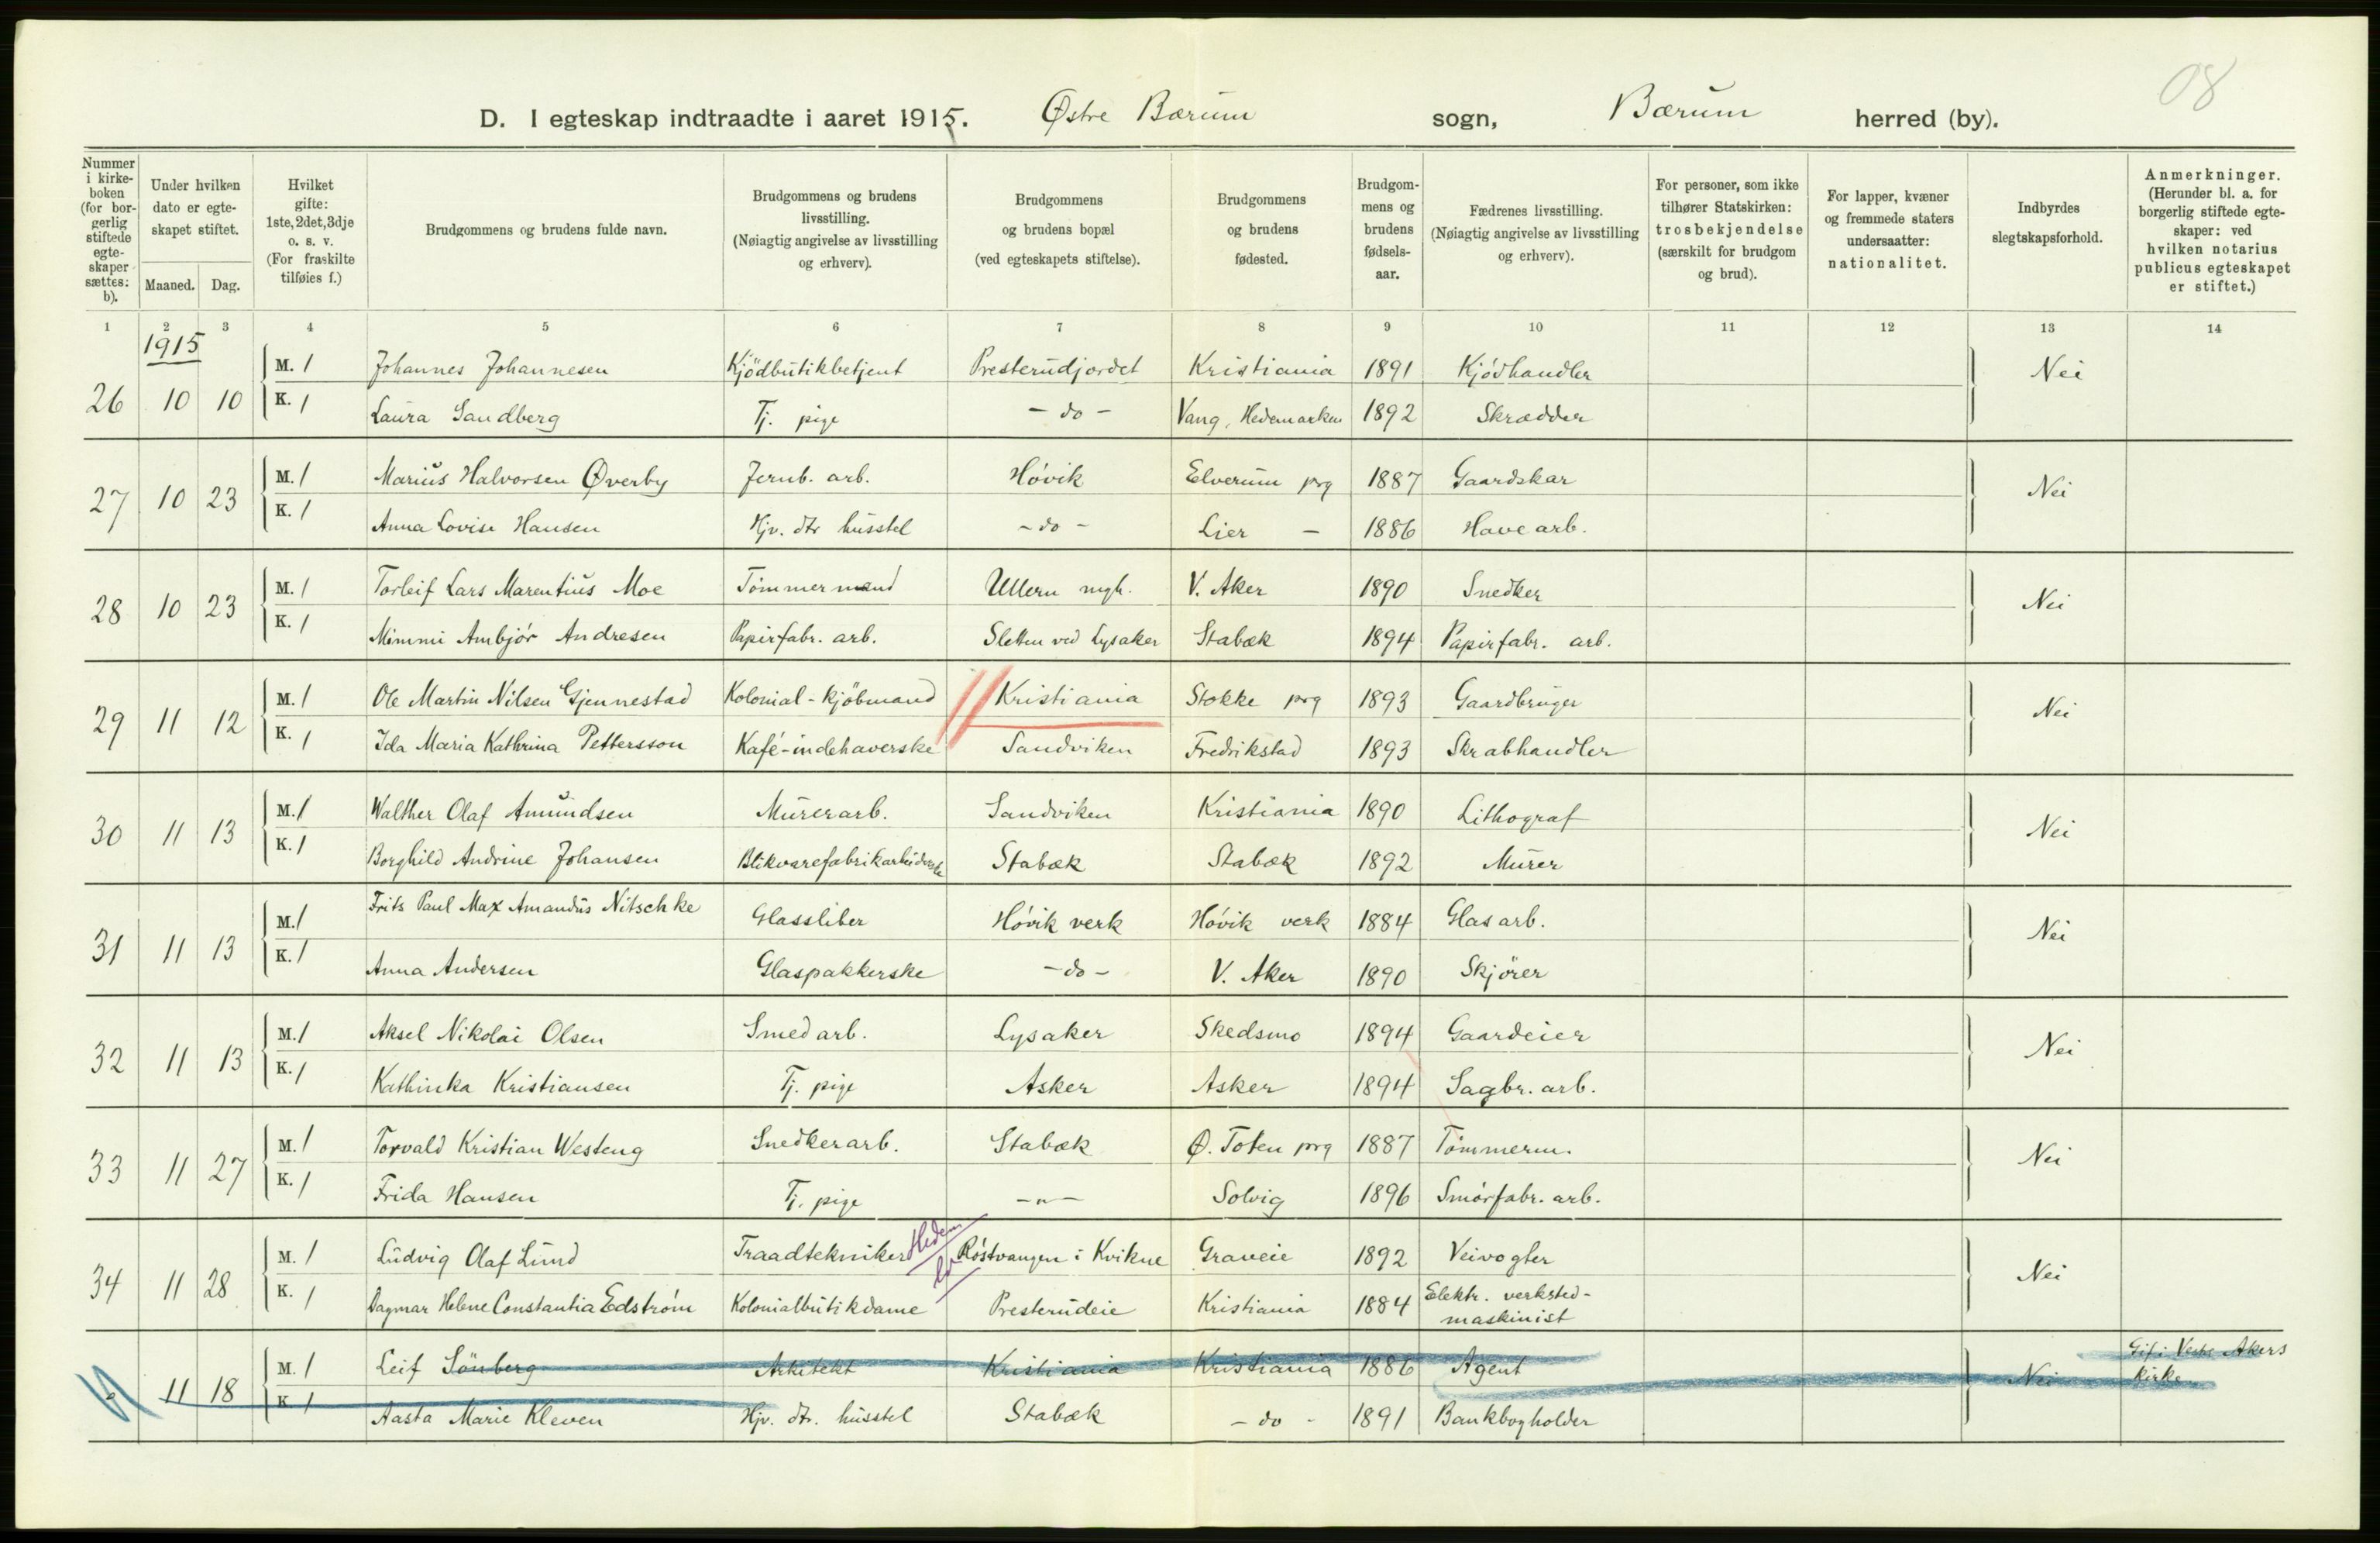 08
D. I egteskap indtraadte i aaret 1915. Østre Bærum sogn, Bærum herred (by).
Nummer i kirke-boken (for bor-gerlig stiftede egte-skaper sættes: b).
Under hvilken dato er egte-skapet stiftet.
Maaned. Dag.
Hvilket gifte: 1ste, 2det, 3dje o. s. v. (For fraskilte tilføies f.)
Brudgommens og brudens fulde navn.
Brudgommens og brudens livsstilling. (Nøiagtig angivelse av livsstilling og erhverv).
Brudgommens og brudens bopæl (ved egteskapets stiftelse).
Brudgommens og brudens fødested.
Brudgom-mens og brudens fødsels-aar.
Fædrenes livsstilling. (Nøiagtig angivelse av livsstilling og erhverv).
For personer, som ikke tilhører Statskirken: trosbekjendelse (særskilt for brudgom og brud).
For lapper, kvæner og fremmede staters undersaatter: nationalitet.
Indbyrdes slegtskapsforhold.
Anmerkninger. (Herunder bl. a. for borgerlig stiftede egte-skaper: ved hvilken notarius publicus egteskapet er stiftet.)
1 2 3 4 5 6 7 8 9 10 11 12 13 14
1915
26 10 10 M. 1 Johannes Johannesen Kjödbutikbetjent Presterudjordet Kristiania 1891 Kjödhandler Nei
K. 1 Laura Sandberg Tj. pige - do - Vang, Hedemarken 1892 Skrædder
27 10 23 M. 1 Marius Halvorsen Øverby Jernb. arb. Hövik Elverum prg 1887 Gaardskar Nei
K. 1 Anna Lovise Hansen Hjv. dtr husstel - do - Lier - 1886 Havearb.
28 10 23 M. 1 Torleif Lars Marentius Moe Tömmermand Ullern mgh. V. Aker 1890 Snedker Nei
K. 1 Mimmi Ambjör Andresen Papirfabr. arb. Sletten ved Lysaker Stabæk 1894 Papirfabr. arb.
29 11 12 M. 1 Ole Martin Nilsen Gjennestad Kolonial-kjöbmand Kristiania Stokke prg 1893 Gaardbruger Nei
K. 1 Ida Maria Kathrina Pettersson Kafé-indehaverske Sandviken Fredrikstad 1893 Skrabhandler
30 11 13 M. 1 Walther Olaf Amundsen Murerarb. Sandviken Kristiania 1890 Lithograf Nei
K. 1 Borghild Andrine Johansen Blikvarefabrikarbeiderske Stabæk Stabæk 1892 Murer
31 11 13 M. 1 Frits Paul Max Amandus Nitschke Glassliber Hövik verk Hövik verk 1884 Glasarb. Nei
K. 1 Anna Andersen Glaspakkerske - do - V. Aker 1890 Skjörer
32 11 13 M. 1 Aksel Nikolai Olsen Smedarb. Lysaker Skedsmo 1894 Gaardeier Nei
K. 1 Kathinka Kristiansen Tj. pige Asker Asker 1894 Sagbr. arb.
33 11 27 M. 1 Torvald Kristian Westeng Snedkerarb. Stabæk Ø. Toten prg 1887 Tömmerm. Nei
K. 1 Frida Hansen Tj. pige - " - Solvig 1896 Smörfabr. arb.
34 11 28 M. 1 Ludvig Olaf Lund Traadtekniker Hedem Röstvangen i Kvikne Graveie 1892 Veivogter Nei
K. 1 Dagmar Helene Constantia Edström Kolonialbutikdame Presterudeie Kristiania 1884 Elektr. verksted-
maskinist
11 18 M. 1 Leif Sönberg Arkitekt Kristiania Kristiania 1886 Agent Nei Gift i Vestre Akers
kirke
K 1 Aasta Marie Kleven Hjv. dtr. husstel Stabæk - do - 1891 Bankbogholder